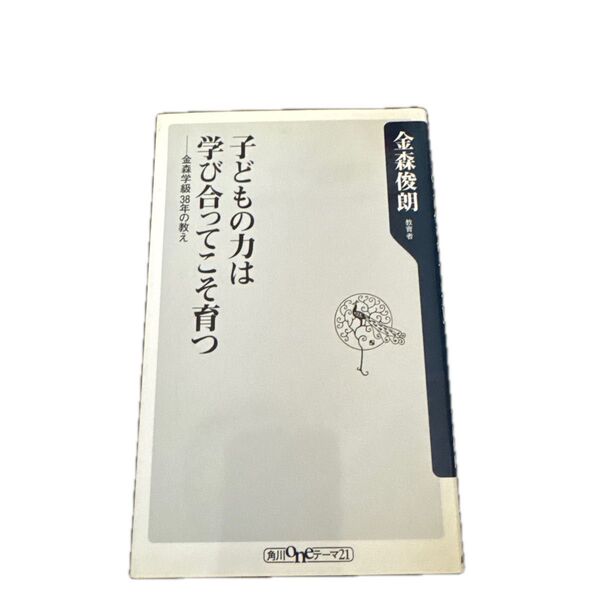 金森俊朗
教育者
子どもの力は
学び合ってこそ育つ
──金森学級38年の教え
角川oneテーマ21